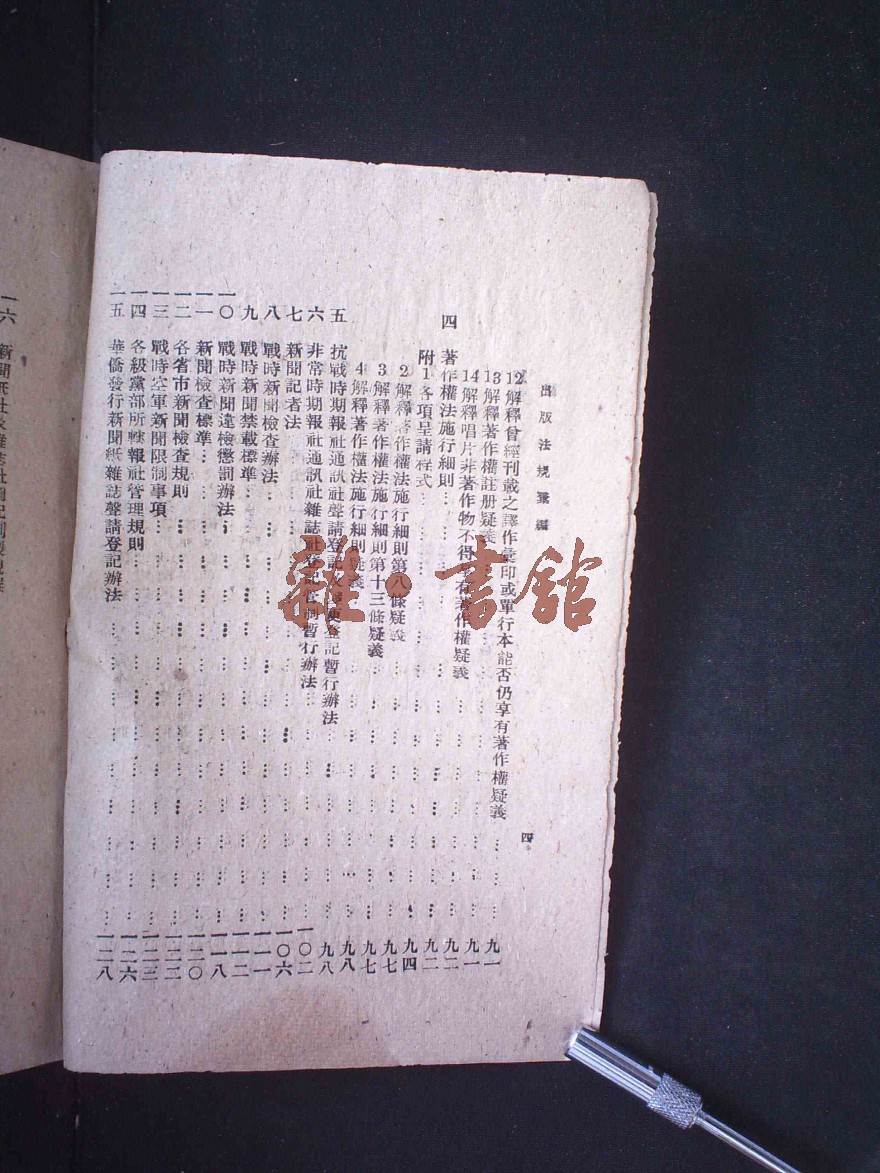 出版法規彙編
四
12解釋曾經刊載之譯作彙印或單行本能否仍享有著作權疑義……九一
13解釋著作權註册疑義……九一
14解釋唱片非著作物不得者著作權疑義……九二
四 著作權法施行細則……九二
附1各項呈請程式……九四
2解釋著作權法施行細則第八條疑義……九七
3解釋著作權法施行細則第十三條疑義……九七
4解釋著作權法施行細則疑義……九八
五 抗戰時期報社通訊社聲請登記及變更登記暫行辦法……九八
六 非常時期報社通訊社雜誌社登記管制暫行辦法……一〇二
七 新聞記者法……一〇六
八 戰時新聞檢查辦法……一一一
九 戰時新聞禁載標準……一一二
一〇 戰時新聞違檢懲罰辦法……一一八
一一 新聞檢查標準……一二〇
一二 各省市新聞檢查規則……一二二
一三 戰時空軍新聞限制事項……一二三
一四 各級黨部所轄報社管理規則……一二六
一五 華僑發行新聞紙雜誌聲請登記辦法……一二八
一六 新聞紙社及雜誌社
雜·書館